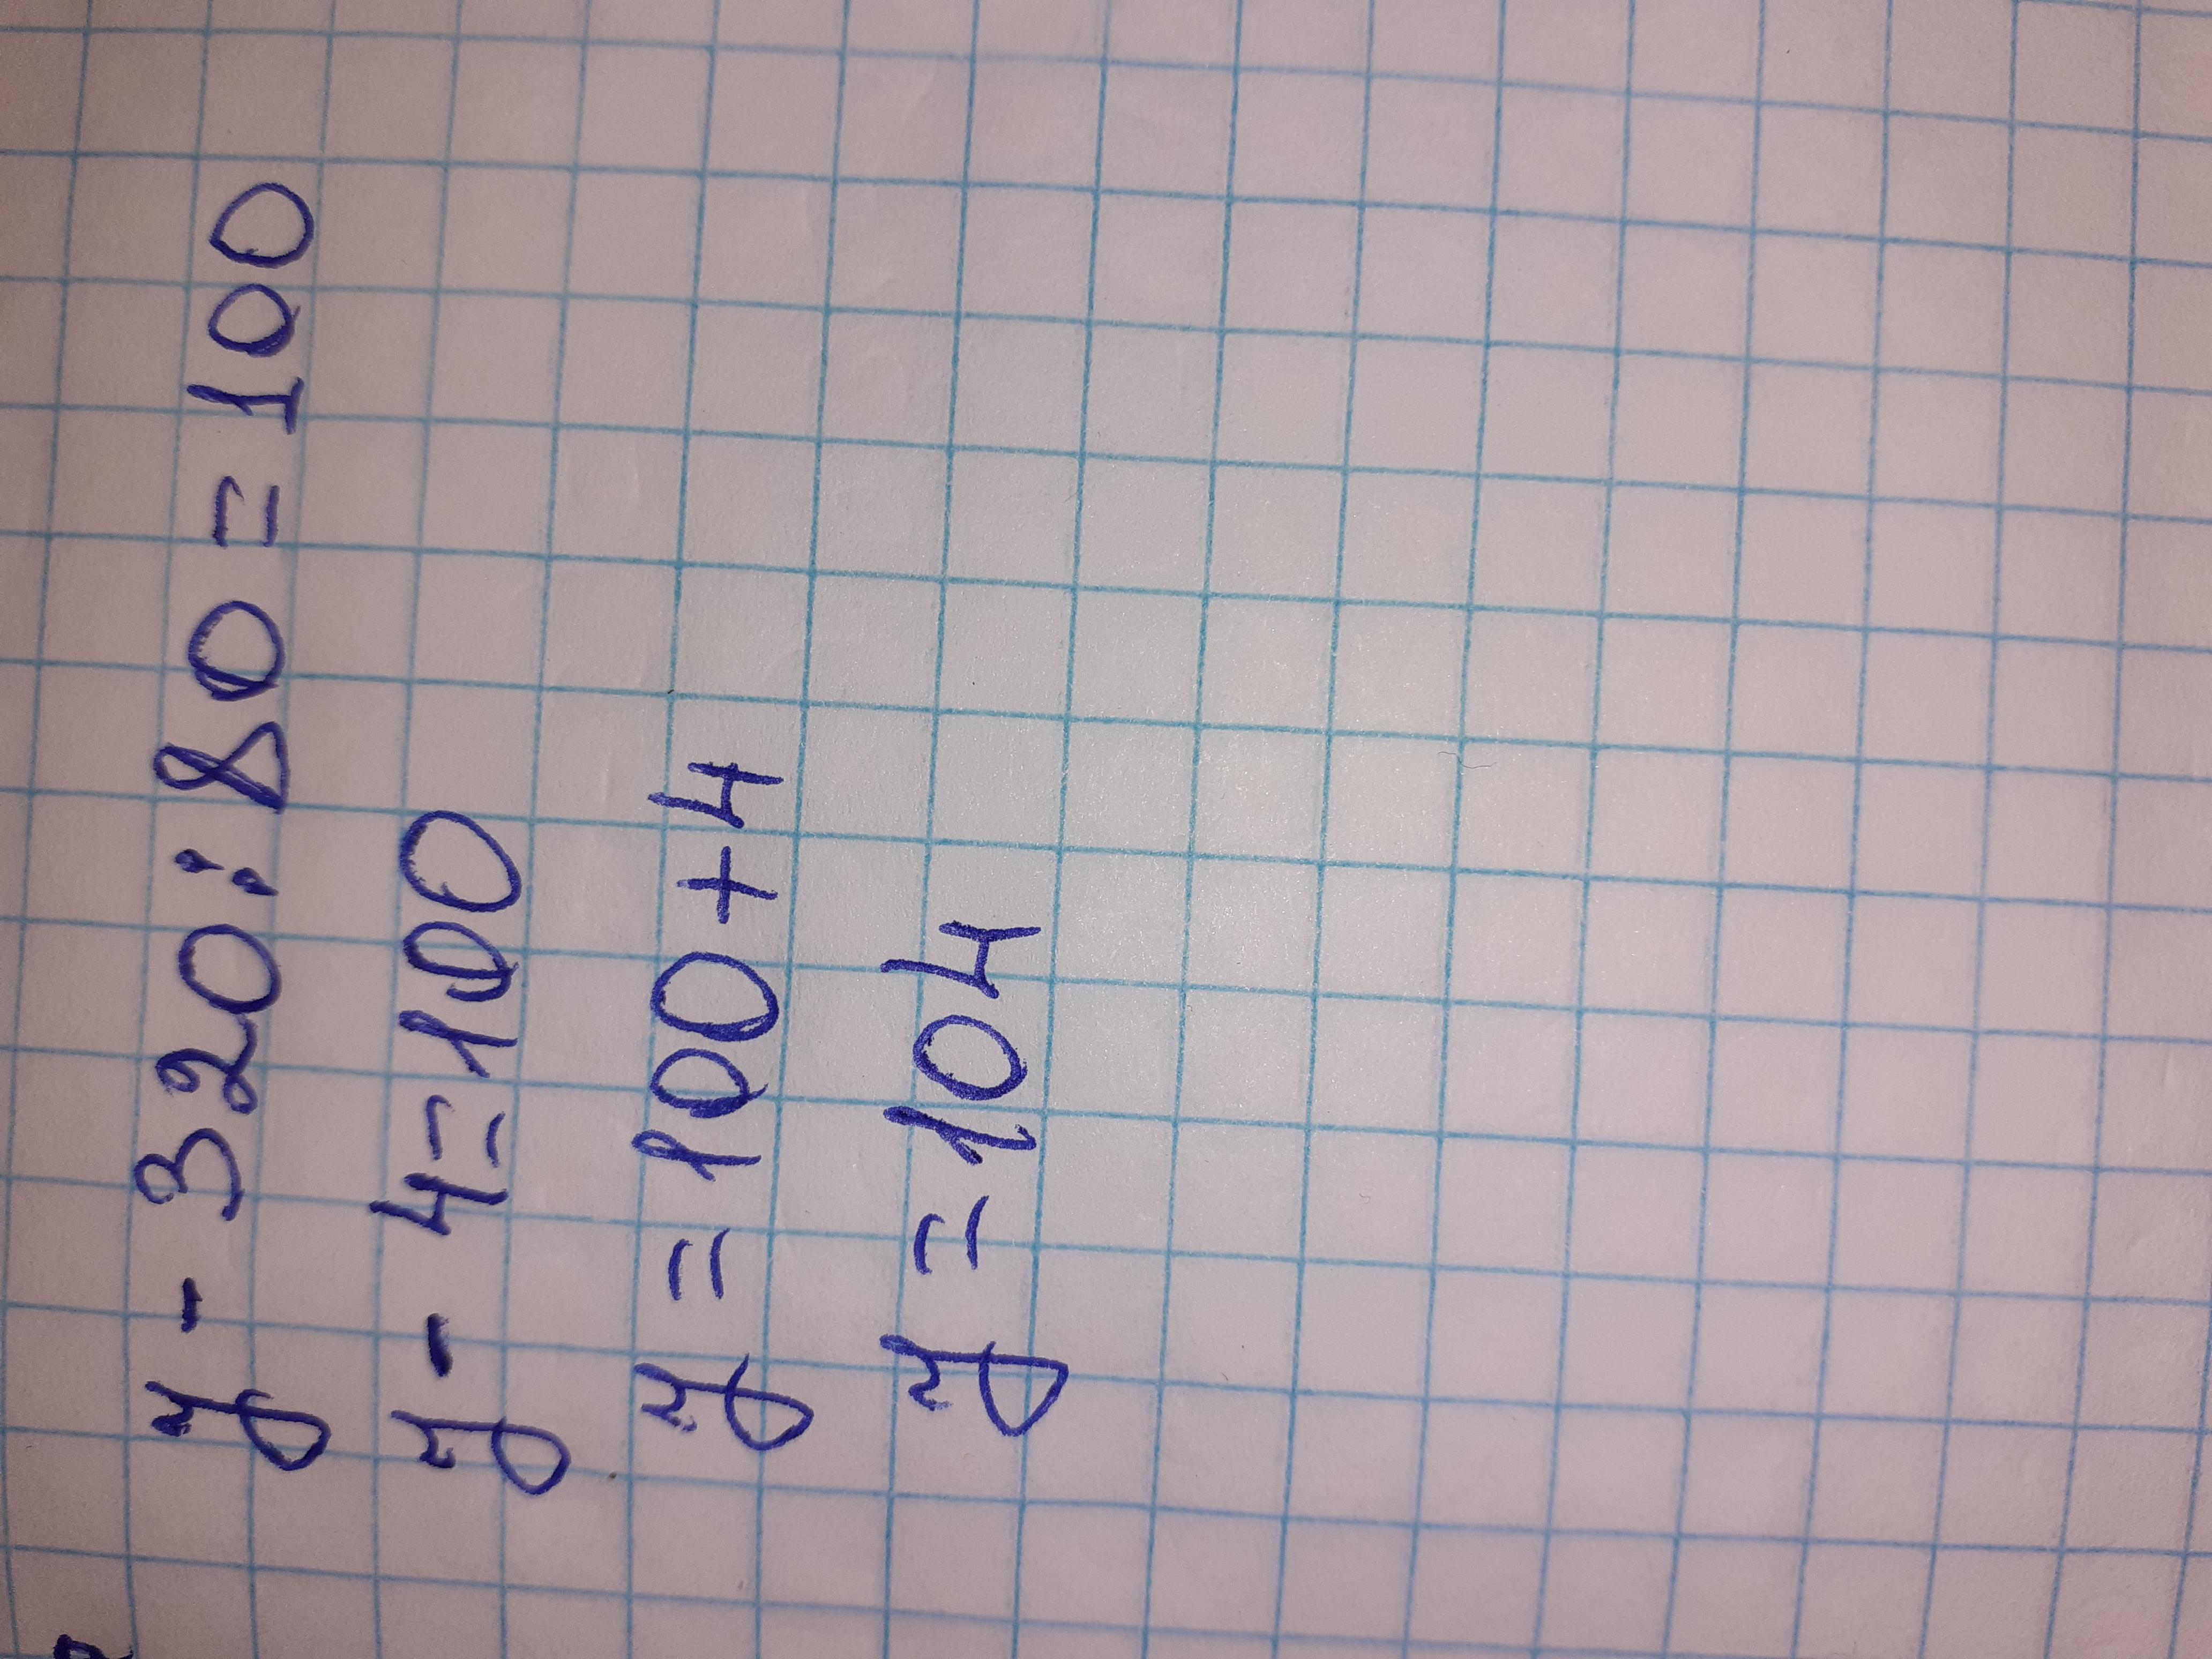 y - 320 : 80 = 100
y - 4 = 100
y = 100 + 4
y = 104